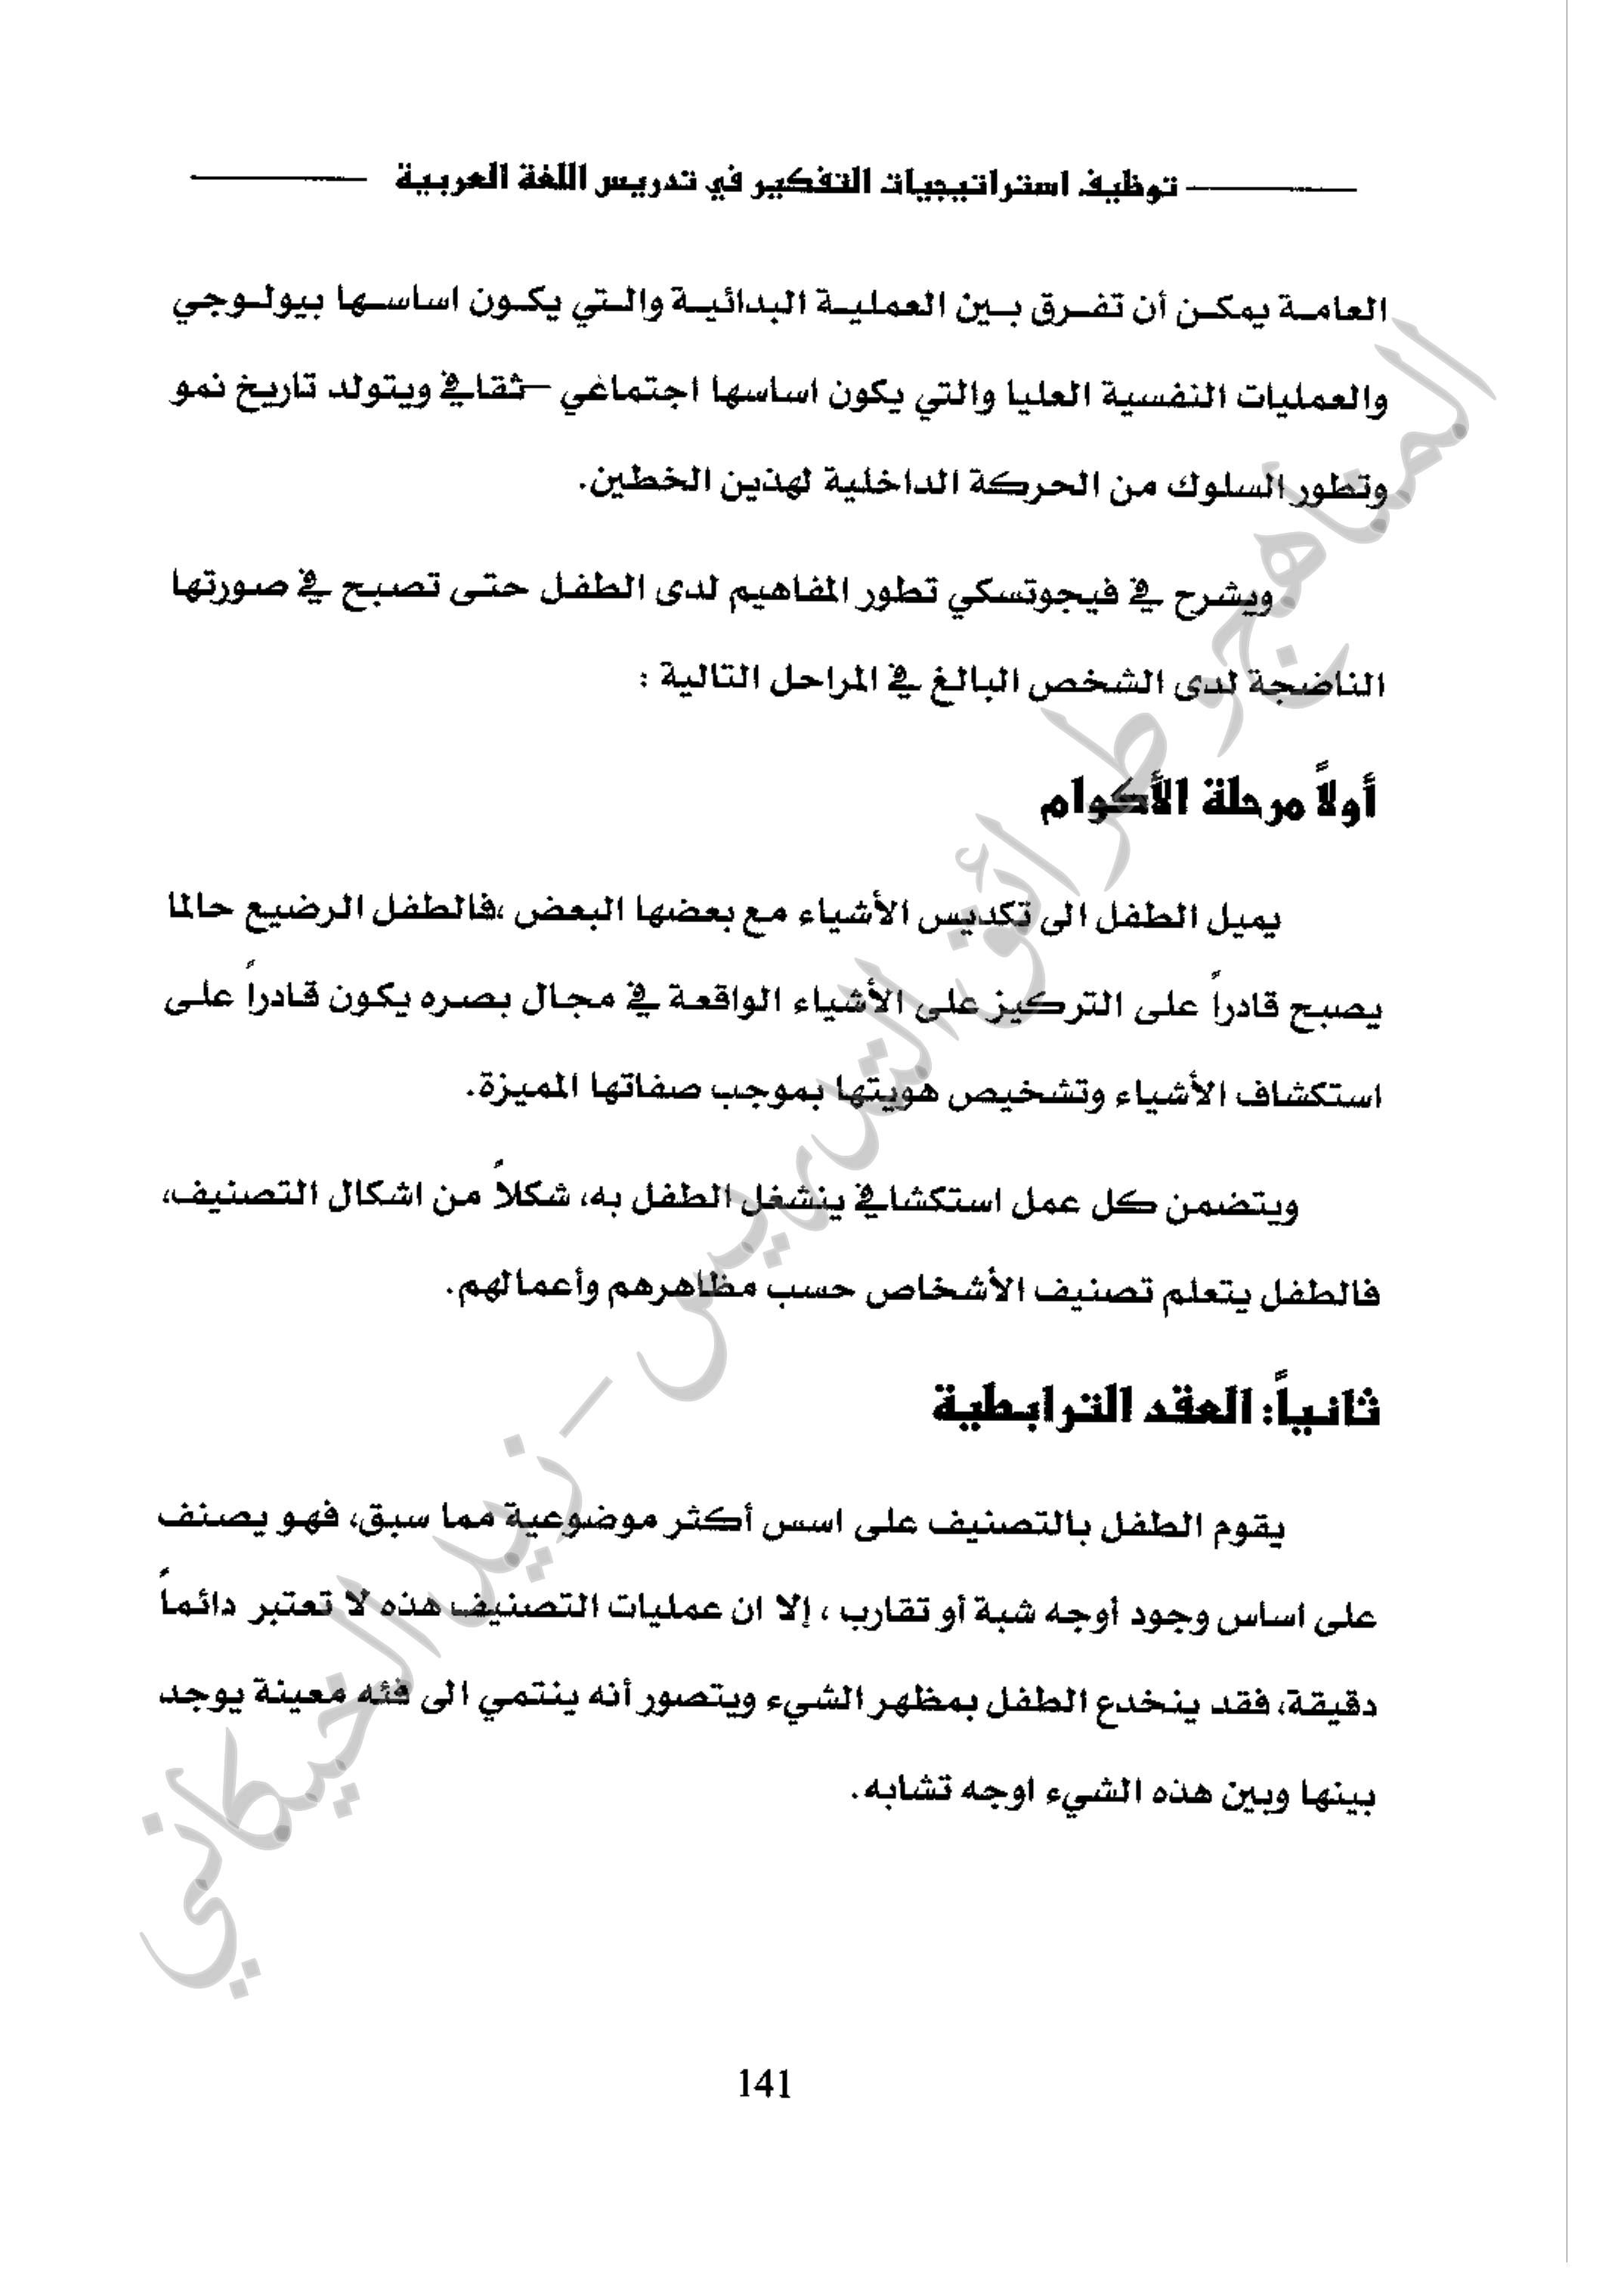 توظيف استراتيجيات التفكير في تدريس اللغة العربية
العامة يمكن أن تفرق بين العملية البدائية والتي يكون اساسها بيولوجي
والعمليات النفسية العليا والتي يكون اساسها اجتماعي –ثقافي ويتولد تاريخ نمو
وتطور السلوك من الحركة الداخلية لهذين الخطين.
ويشرح في فيجوتسكي تطور المفاهيم لدى الطفل حتى تصبح في صورتها
الناضجة لدى الشخص البالغ في المراحل التالية :
أولاً مرحلة الأكوام
يميل الطفل الى تكديس الأشياء مع بعضها البعض ،فالطفل الرضيع حالما
يصبح قادراً على التركيز على الأشياء الواقعة في مجال بصره يكون قادراً على
استكشاف الأشياء وتشخيص هويتها بموجب صفاتها المميزة.
ويتضمن كل عمل استكشافي ينشغل الطفل به، شكلاً من اشكال التصنيف،
فالطفل يتعلم تصنيف الأشخاص حسب مظاهرهم وأعمالهم.
ثانياً: العقد الترابطية
يقوم الطفل بالتصنيف على اسس أكثر موضوعية مما سبق، فهو يصنف
على اساس وجود أوجه شبة أو تقارب ، إلا ان عمليات التصنيف هذه لا تعتبر دائماً
دقيقة، فقد ينخدع الطفل بمظهر الشيء ويتصور أنه ينتمي الى فئه معينة يوجد
بينها وبين هذه الشيء اوجه تشابه.
141
المناهج وطرائق التدريس – زيد الخيكاني